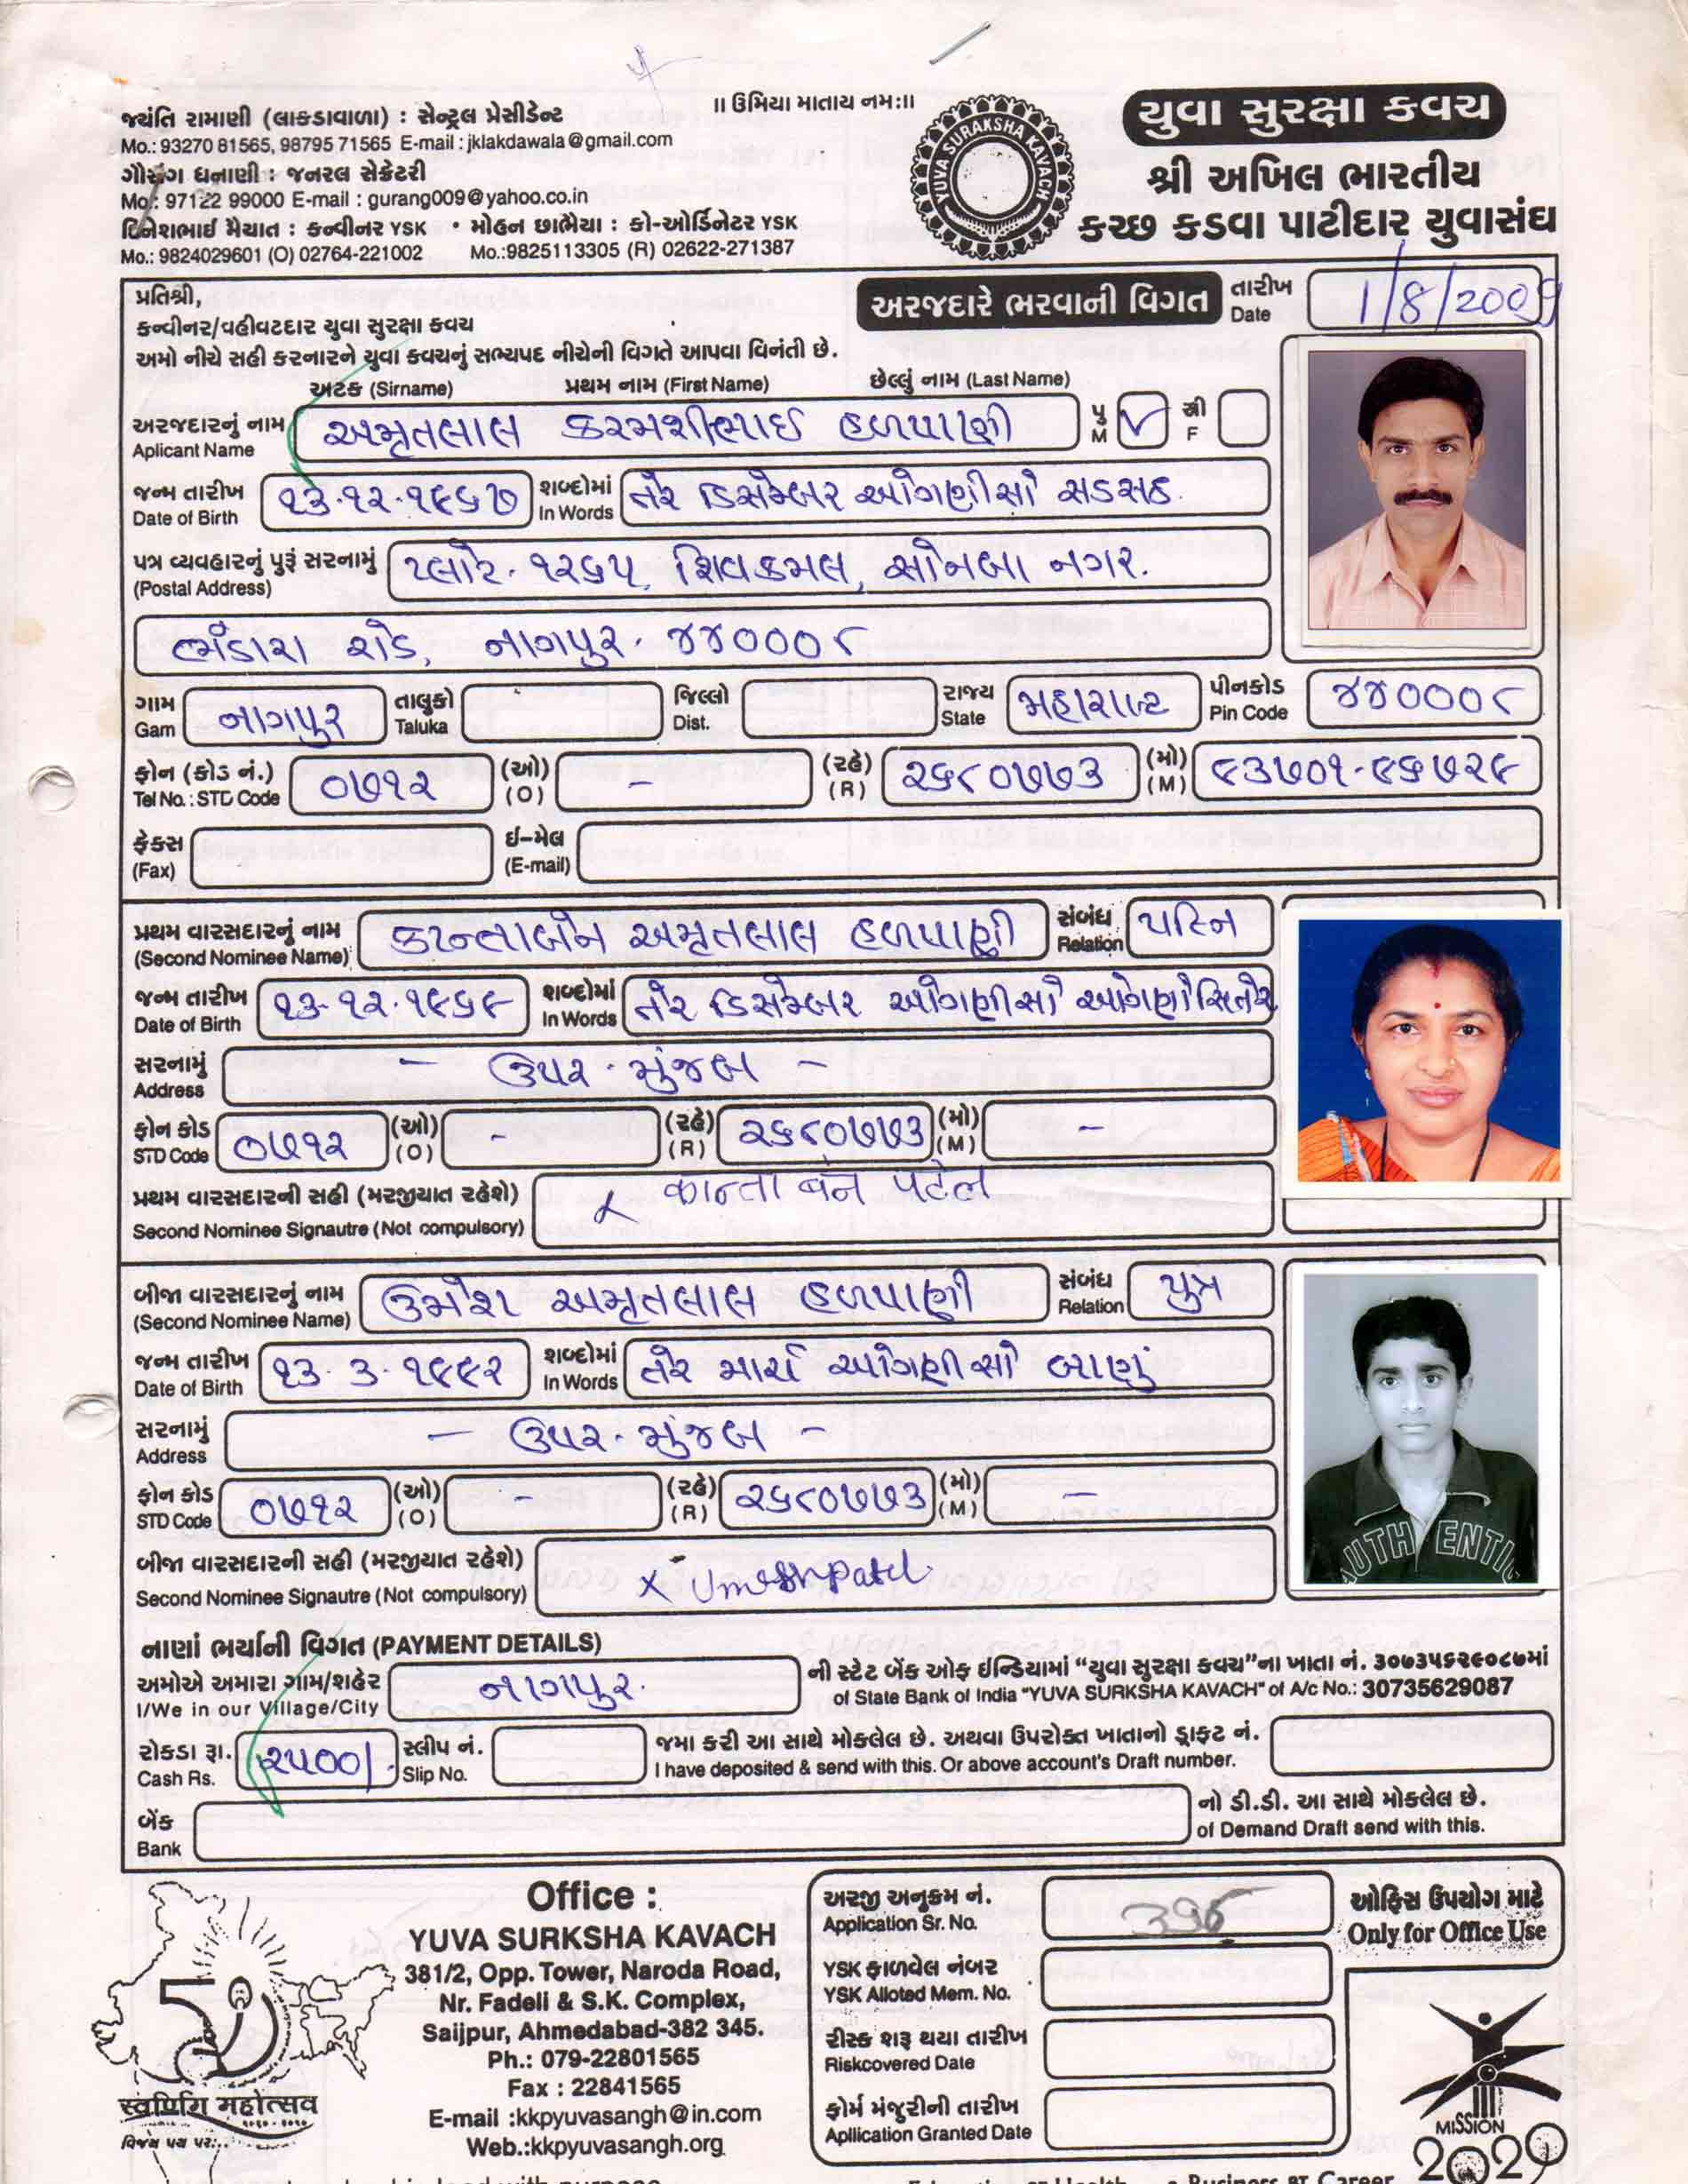 ॥ ઉમિયા માતાય નમઃ॥
જયંતિ રામાણી (લાકડાવાળા) : સેન્ટ્રલ પ્રેસીડેન્ટ
Mo.: 93270 81565, 98795 71565 E-mail : jklakdawala@gmail.com
ગૌરાંગ ધનાણી : જનરલ સેક્રેટરી
Mo.: 97122 99000 E-mail : gurang009@yahoo.co.in
દિનેશભાઈ મૈયાત : કન્વીનર YSK • મોહન છાભૈયા : કો-ઓર્ડિનેટર YSK
Mo.: 9824029601 (O) 02764-221002 Mo.:9825113305 (R) 02622-271387
YUVA SURAKSHA KAVACH
યુવા સુરક્ષા કવચ
શ્રી અખિલ ભારતીય
કચ્છ કડવા પાટીદાર યુવાસંઘ
પ્રતિશ્રી,
કન્વીનર/વહીવટદાર યુવા સુરક્ષા કવચ
અમો નીચે સહી કરનારને યુવા કવચનું સભ્યપદ નીચેની વિગતે આપવા વિનંતી છે.
અરજદારે ભરવાની વિગત
તારીખ Date 1/8/2009
અટક (Sirname) પ્રથમ નામ (First Name) છેલ્લું નામ (Last Name)
અરજદારનું નામ Aplicant Name અમૃતલાલ કરમશીભાઈ હળપાણી પુ M ✓ સ્ત્રી F
જન્મ તારીખ Date of Birth ૧૩-૧૨-૧૯૬૭ શબ્દોમાં In Words તેર ડિસેમ્બર ઓગણીસો સડસઠ.
પત્ર વ્યવહારનું પુરૂં સરનામું (Postal Address) પ્લોટ-૧૨૬૫, શિવકમલ, સોનબા નગર.
ભંડારા રોડ, નાગપુર-૪૪૦૦૦૮
ગામ Gam નાગપુર તાલુકો Taluka જિલ્લો Dist. રાજ્ય State મહારાષ્ટ્ર પીનકોડ Pin Code ૪૪૦૦૦૮
ફોન (કોડ નં.) Tel No.: STD Code ૦૭૧૨ (ઓ) (O) - (રહે) (R) ૨૬૮૦૭૭૩ (મો) (M) ૯૩૭૦૧-૯૬૭૨૯
ફેક્સ (Fax) ઈ-મેલ (E-mail)
પ્રથમ વારસદારનું નામ (Second Nominee Name) કાન્તાબેન અમૃતલાલ હળપાણી સંબંધ Relation પત્નિ
જન્મ તારીખ Date of Birth ૧૩-૧૨-૧૯૬૯ શબ્દોમાં In Words તેર ડિસેમ્બર ઓગણીસો ઓગણોસિતેર
સરનામું Address - ઉપર મુંજબ -
ફોન કોડ STD Code ૦૭૧૨ (ઓ) (O) - (રહે) (R) ૨૬૮૦૭૭૩ (મો) (M) -
પ્રથમ વારસદારની સહી (મરજીયાત રહેશે) Second Nominee Signautre (Not compulsory) x कान्ता बेन पटेल
બીજા વારસદારનું નામ (Second Nominee Name) ઉમેશ અમૃતલાલ હળપાણી સંબંધ Relation પુત્ર
જન્મ તારીખ Date of Birth ૧૩-૩-૧૯૯૨ શબ્દોમાં In Words તેર માર્ચ ઓગણીસો બાણું
સરનામું Address - ઉપર મુંજબ -
ફોન કોડ STD Code ૦૭૧૨ (ઓ) (O) - (રહે) (R) ૨૬૮૦૭૭૩ (મો) (M) -
AUTHENTIC
બીજા વારસદારની સહી (મરજીયાત રહેશે) Second Nominee Signautre (Not compulsory) x Umesh patel
નાણાં ભર્યાની વિગત (PAYMENT DETAILS)
અમોએ અમારા ગામ/શહેર નાગપુર. ની સ્ટેટ બેંક ઓફ ઈન્ડિયામાં "યુવા સુરક્ષા કવચ"ના ખાતા નં. ૩૦૭૩૫૬૨૯૦૮૭માં
I/We in our Village/City of State Bank of India "YUVA SURKSHA KAVACH" of A/c No.: 30735629087
રોકડા રૂા. Cash Rs. ૨૫૦૦/- સ્લીપ નં. Slip No. જમા કરી આ સાથે મોકલેલ છે. અથવા ઉપરોક્ત ખાતાનો ડ્રાફ્ટ નં.
I have deposited & send with this. Or above account's Draft number.
બેંક Bank નો ડી.ડી. આ સાથે મોકલેલ છે.
of Demand Draft send with this.
स्वर्णिम महोत्सव
Office :
YUVA SURKSHA KAVACH
381/2, Opp. Tower, Naroda Road,
Nr. Fadeli & S.K. Complex,
Saijpur, Ahmedabad-382 345.
Ph.: 079-22801565
Fax : 22841565
E-mail :kkpyuvasangh@in.com
Web.:kkpyuvasangh.org
અરજી અનુક્રમ નં. Application Sr. No.
YSK ફાળવેલ નંબર YSK Alloted Mem. No.
રીસ્ક શરૂ થયા તારીખ Riskcovered Date
ફોર્મ મંજુરીની તારીખ Apllication Granted Date
ઓફિસ ઉપયોગ માટે
Only for Office Use
MISSION
2020